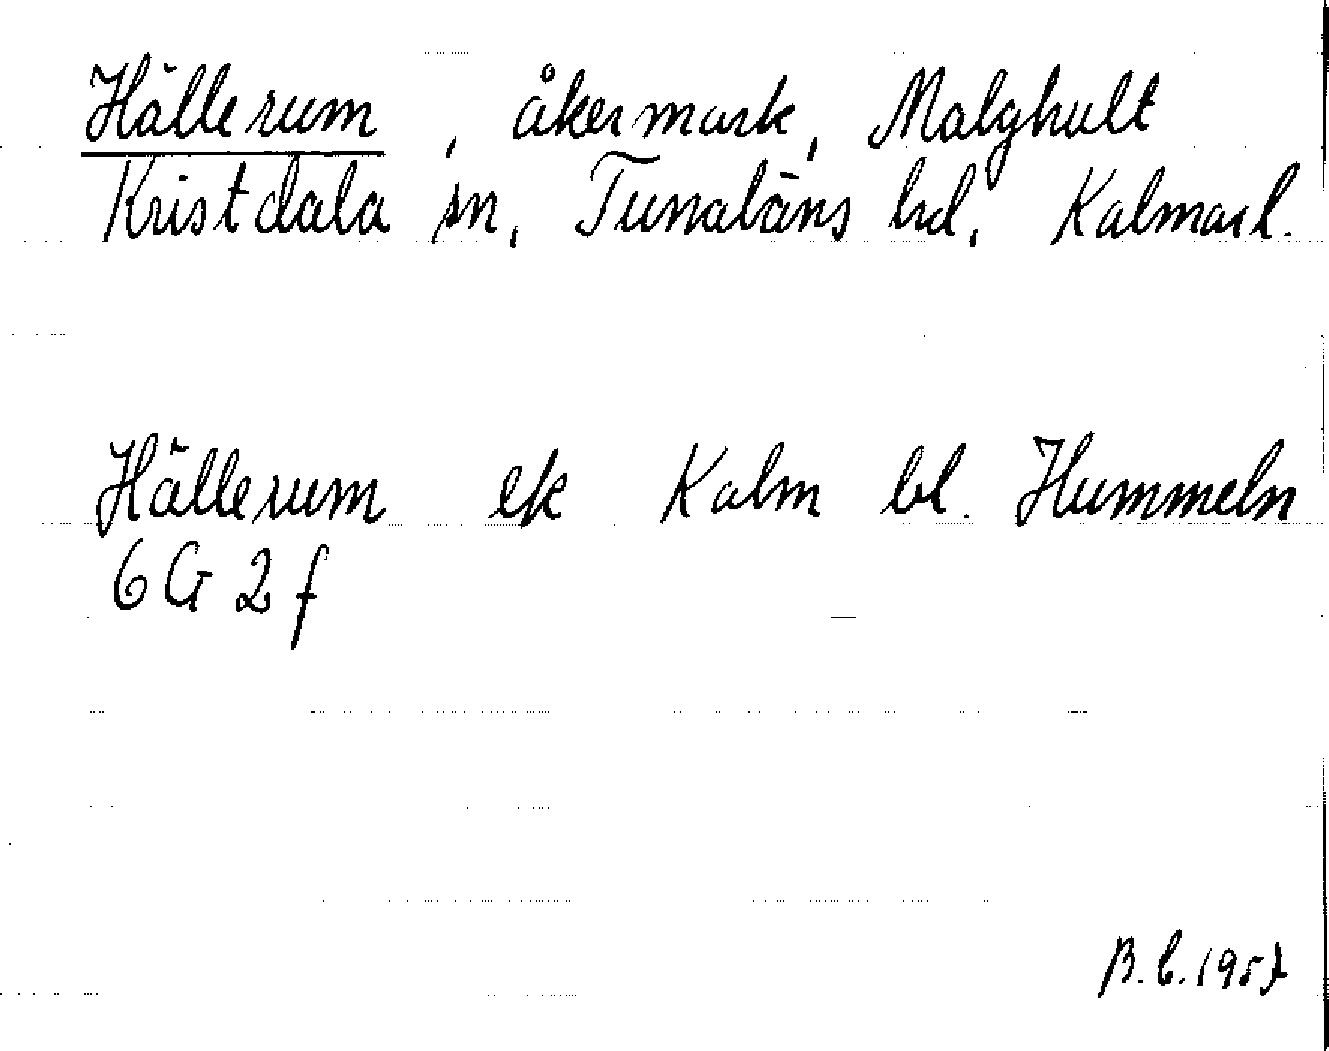 Hällerum, åkermark, Malghult
Kristdala sn, Tunaläns hd, Kalmarl.
Hällerum ek Kalm bl. Hummeln
6G2f
B.C.1957